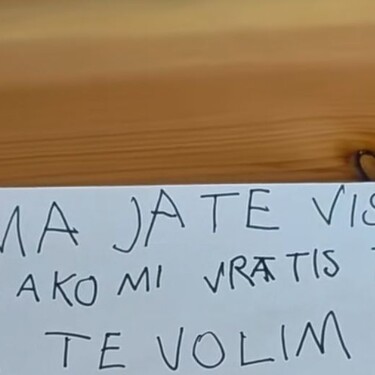 MA JA TE VIS
AKO MI VRATIS
TE VOLIM